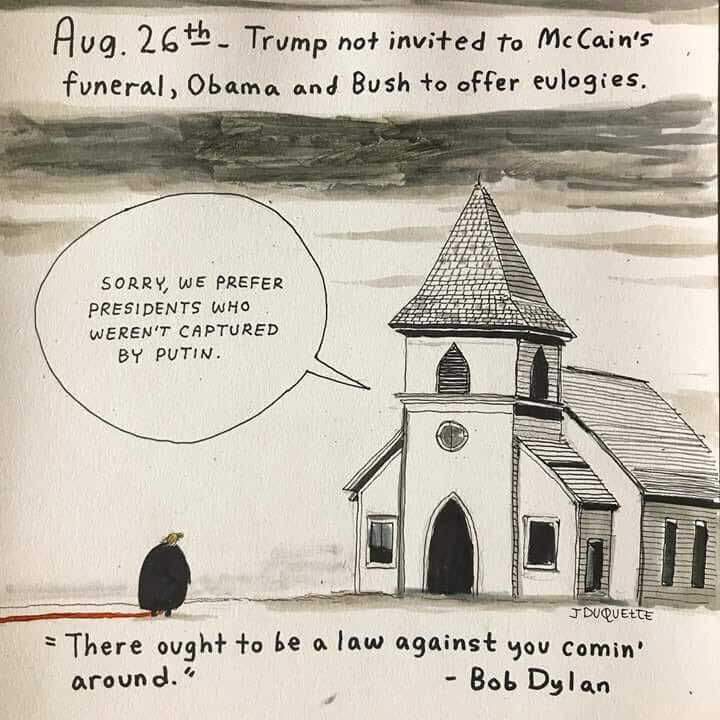 Aug. 26th - Trump not invited to McCain's
funeral, Obama and Bush to offer eulogies.
SORRY, WE PREFER
PRESIDENTS WHO
WEREN'T CAPTURED
BY PUTIN.
J DUQUETTE
"There ought to be a law against you comin'
around."
- Bob Dylan